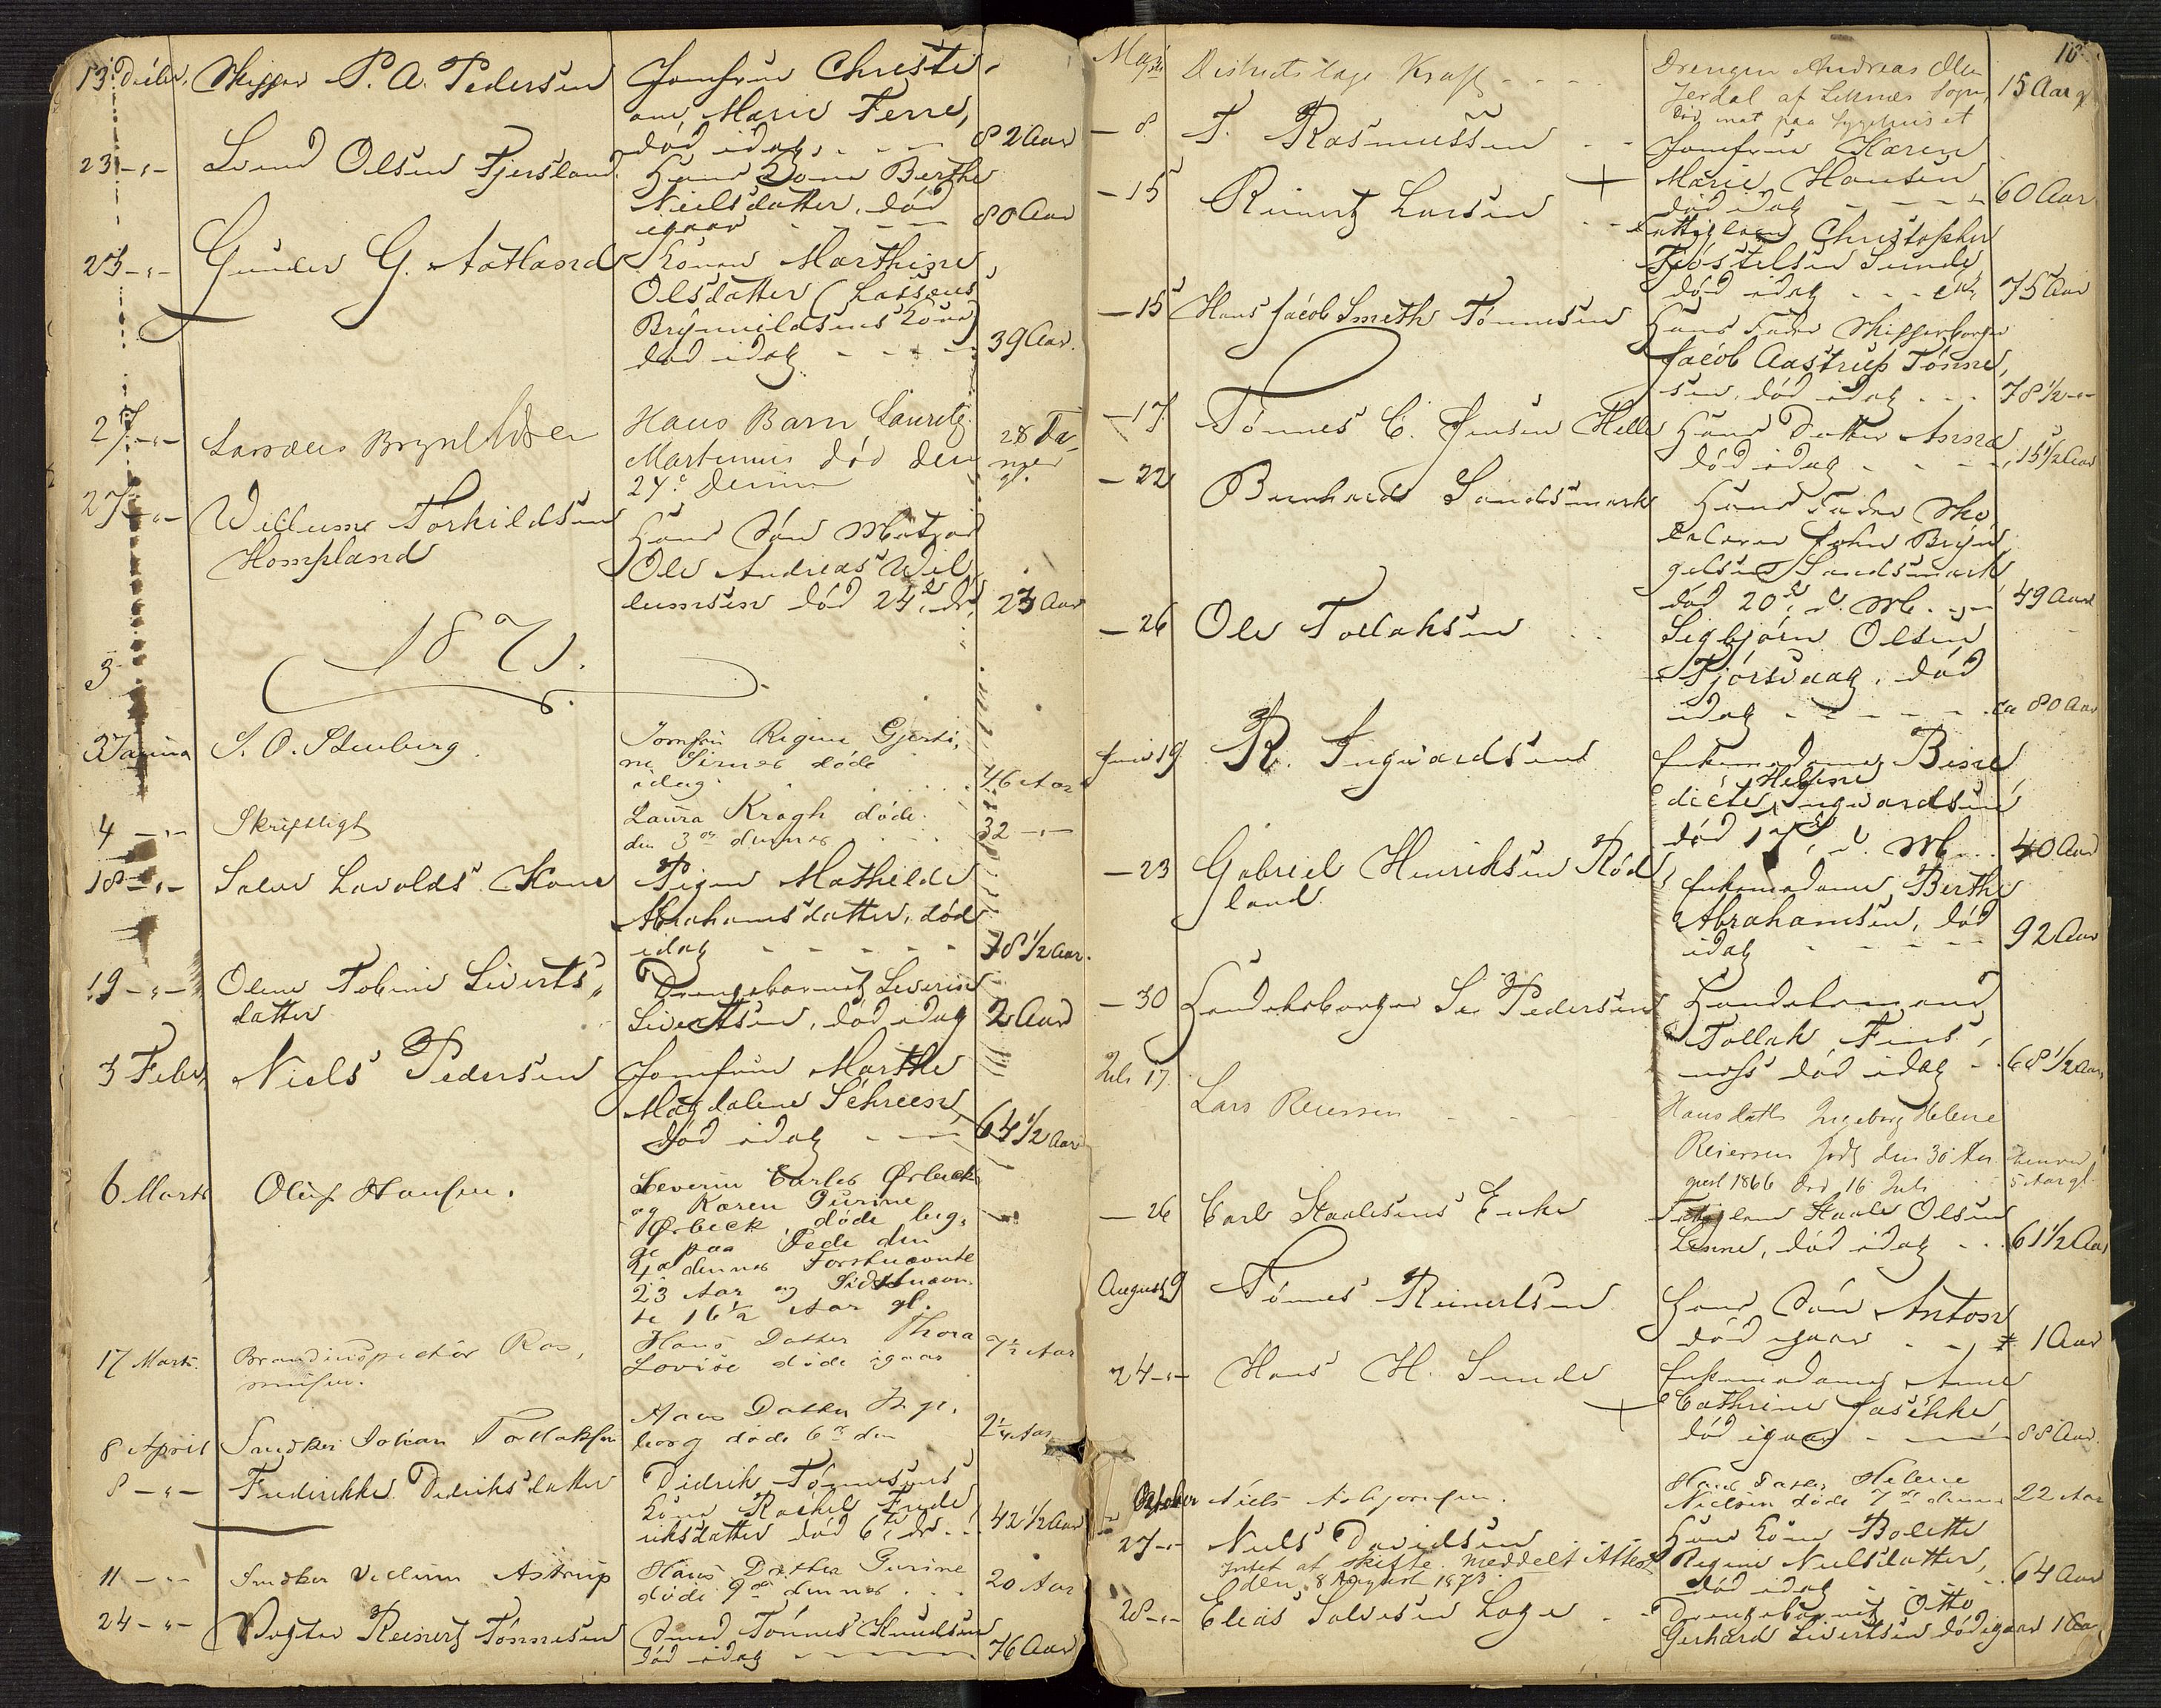 13 Decbr. Skipper P. A. Pedersen Jomfrue Christi-
ane Marie Ferre,
død idag. - - - 82 Aar
23 -"- Svend Olsen Fjersland Hans Kone Berthe
Nielsdatter, død
igaar - - - - 80 Aar
23 -"- Gunder G. Aatland Konen Marthine
Olsdatter (Lassens
Brynnildsens Kone)
død idag. - - - - 39 Aar.
27 -"- Hans Barn Lauritz
Martinus død den
24de Dennes
27 -"- Willum Torkildsen Hans Søn Matros
Hompland Ole Andreas Wil
lumsen død 24de ds. 23 Aar
1871.
3
3 Januar S. O. Stenberg. Jomfru Regine Gjerti,
ne Sirnes døde
idag. . . . . 46 Aar
4 -"- Skriftligt Laura Kragh døde
den 3de dennes . . . 32 -"-
18 -"- Lavolds Kone Pigen Mathilde
Abrahamsdatter, død
idag - - - - - 18 1/2 Aar.
19 -"- Olene Tobine Siverts, Drengebarnet Severin
datter Sivertsen, død idag 2 Aar
3 Febr. Niels Pedersen Jomfrue Marthe
Magdalene Schreen,
død idag - - - 64 1/2 Aar
6 Marts Oluf Hansen. Severin Carles Ørbeck
og Karen Gurine
Ørbeck, døde beg,
ge paa Fede den
4de dennes Førstnævnte
23 Aar og Sidstnævn
te 16 1/2 Aar gl.
17 Marts. Brandinspectør Ras, Hans Datter Thora
musen. Lovise døde igaar 7 1/2 Aar
8 April Snedker Johan Tollaksen Hans Datter Inge,
borg døde 6te den 2 1/4 Aar
8 -"- Frederikke Dideriksdatter Didrik Tønnesens
Kone Rachel Frede
riksdatter død 6te ds. 42 1/2 Aar
11 -"- Snedker Vellum Astrup Hans Datter Gurine
døde 9de dennes . . . 20 Aar
24 -"- Vægter Reinert Tønnesen Smed Tønnes Knudsen
død idag - - - 76 Aar
16
Mai Districtslæge Kraft - - - Drengen Andreas
Jerdal af Liknæs Sogn,
paa Sygehuset 15 Aar gl
- 8 T. Rasmussen - - Jomfrue Karen
Marie Hansen
død idag - - - 60 Aar
- 15 Reinert Larsen - - Fattiglem Christopher
Tjøstelsen Sunde,
død idag - - - ca. 75 Aar
- 15 Hans Jacob Smith Tønnesen Hans Fader Skipperborger
Jacob Aastrup Tønne,
sen, død idag - - 78 1/2 -"-
- 17 Tønnes C. Jensen Helle Hans Datter Anna
død idag - - - 15 1/2 Aar
- 22 Bernhard Sandsmark Hans Fader Sko
John Bryn
gelsen Sandsmark,
død 20de d. M. -"- 49 Aar
- 26 Ole Tollaksen - - Sigbjørn Olsen
Fjørsvaag, død
idag - - - - - ca 80 Aar
Juni 19 R. Ingvardsen Enkemadame Bene
Helene
dicte Ingvardsen
død 17de d. M. . . 40 Aar
- 23 Gabriel Henriksen Rød Enkemadame Berthe
land. Abrahamsen, død
idag - - - - - 92 Aar
- 30 Handelsborger Pedersen Handelsmand
Tollak Fins,
næss død idag - - 68 1/2 Aar
Juli 17. Lars Reiersen - - - Hans datter Ingeborg Helene
Reiersen født den 30 Au
gust 1866 død 16 Juli 5 Aar gl.
- 26 Carl Staalesens Enke Fattiglem Staale Olsen
død idag . . 61 1/2 Aar
August 9 Tønnes Reinertsen Hans Søn Anton
død igaar - - 1 Aar
24 -"- Hans H. Sunde Enkemadame Anne
Cathrine
død igaar - - - 88 Aar.
October Niels Asbjørnsen. Hans Datter Helene
Nielsen døde 7de dennes 22 Aar
27 -"- Niels Davidsen Hans Kone Bolette
Intet at skifte. Meddelt Attest Regine Nielsdatter,
den 8 August 1873. død idag - - - 64 Aar
28 -"- Elias Salvesen Loge - - Drengebarnet Otto
Gerhard Sivertsen død igaar 1 Aar